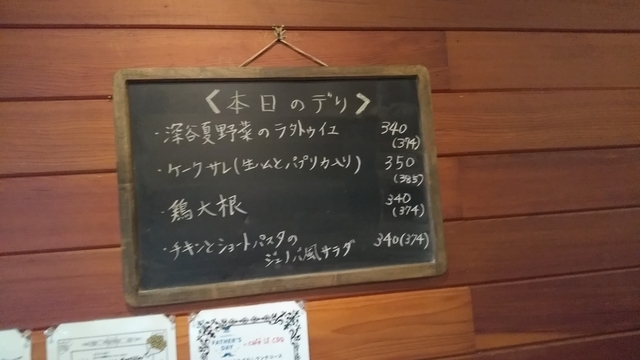 <本日のデリ>
・深谷夏野菜のラタトゥイユ 340
(374)
・ケークサレ(生ハムとパプリカ入り) 350
(385)
・鶏大根 340
(374)
・チキンとショートパスタの 340(374)
ジェノバ風サラダ
FATHER'S
DAY